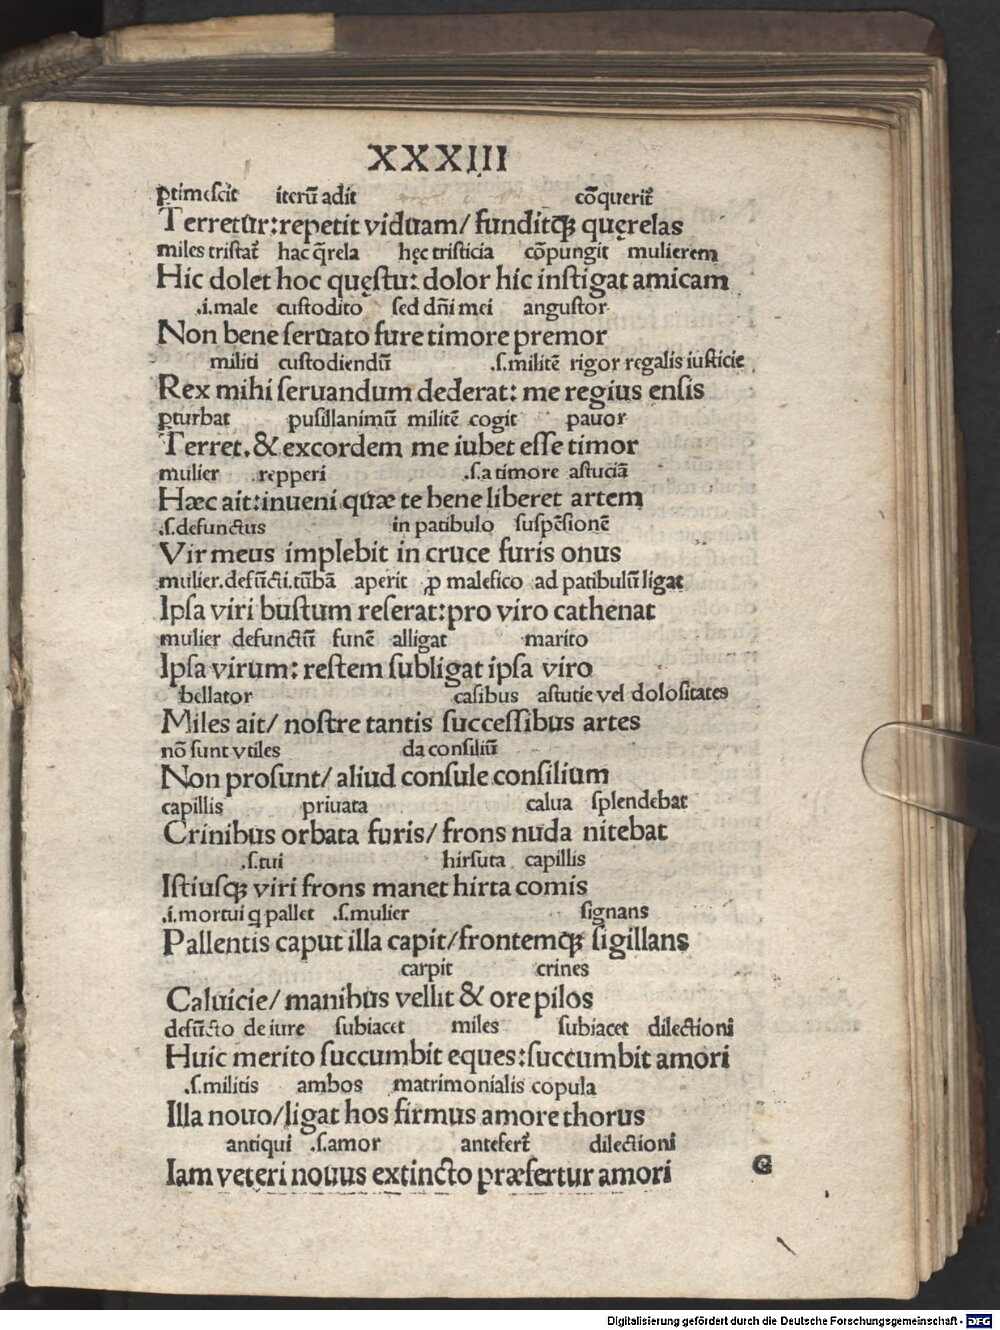 XXXIII
ꝑtimescit iterū adit cōquerit᷑
Terretur: repetit viduam/ funditqꝫ quęrelas
miles tristat᷑ hac q̄rela hęc tristicia cōpungit mulierem
Hic dolet hoc quęstu: dolor hic instigat amicam
.i. male custodito sed dn̄i mei angustor
Non bene seruato fure timore premor
militi custodiendū .s. militē rigor regalis iusticie
Rex mihi seruandum dederat: me regius ensis
ꝑturbat pusillanimū militē cogit pauor
Terret. & excordem me iubet esse timor
mulier repperi .s. a timore astuciā
Hæc ait: inueni quæ te bene liberet artem
.s. defunctus in patibulo suspēsionē
Vir meus implebit in cruce furis onus
mulier. defūcti. tūbā aperit ꝓ malefico ad patibulū ligat
Ipsa viri bustum reserat: pro viro cathenat
mulier defunctū funē alligat marito
Ipsa virum: restem subligat ipsa viro
bellator casibus astutie vel dolositates
Miles ait/ nostre tantis successibus artes
nō sunt vtiles da consiliū
Non prosunt/ aliud consule consilium
capillis priuata calua splendebat
Crinibus orbata furis/ frons nuda nitebat
.s. tui hirsuta capillis
Istiusqꝫ viri frons manet hirta comis
.i. mortui q pallet .s. mulier signans
Pallentis caput illa capit/ frontemqꝫ sigillans
carpit crines
Caluicie/ manibus vellit & ore pilos
defūcto de iure subiacet miles subiacet dilectioni
Huic merito succumbit eques: succumbit amori
.s. militis ambos matrimonialis copula
Illa nouo/ ligat hos firmus amore thorus
antiqui .s. amor antefert᷑ dilectioni
Iam veteri nouus extincto præfertur amori
G
Digitalisierung gefördert durch die Deutsche Forschungsgemeinschaft - DFG